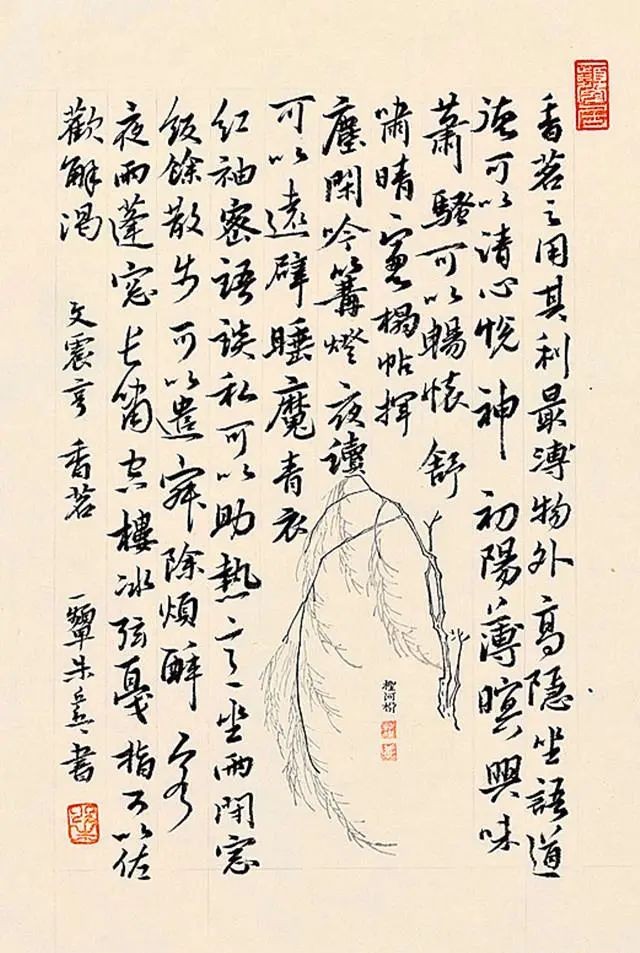 香茗之用其利最溥物外高隱坐語道
德可以清心悅神初陽薄暝興味
蕭騷可以暢懷舒
嘯晴窓搨帖揮
麈閑吟篝燈夜讀
可以遠辟睡魔青衣
紅袖密語談私可以助熱意坐雨閉窓
飯餘散步可以遣寂除煩醉客
夜雨蓬窓長嘯空樓冰弦戛指可以佐
歡解渴
文震亨 香茗
朱 書
檉河柳